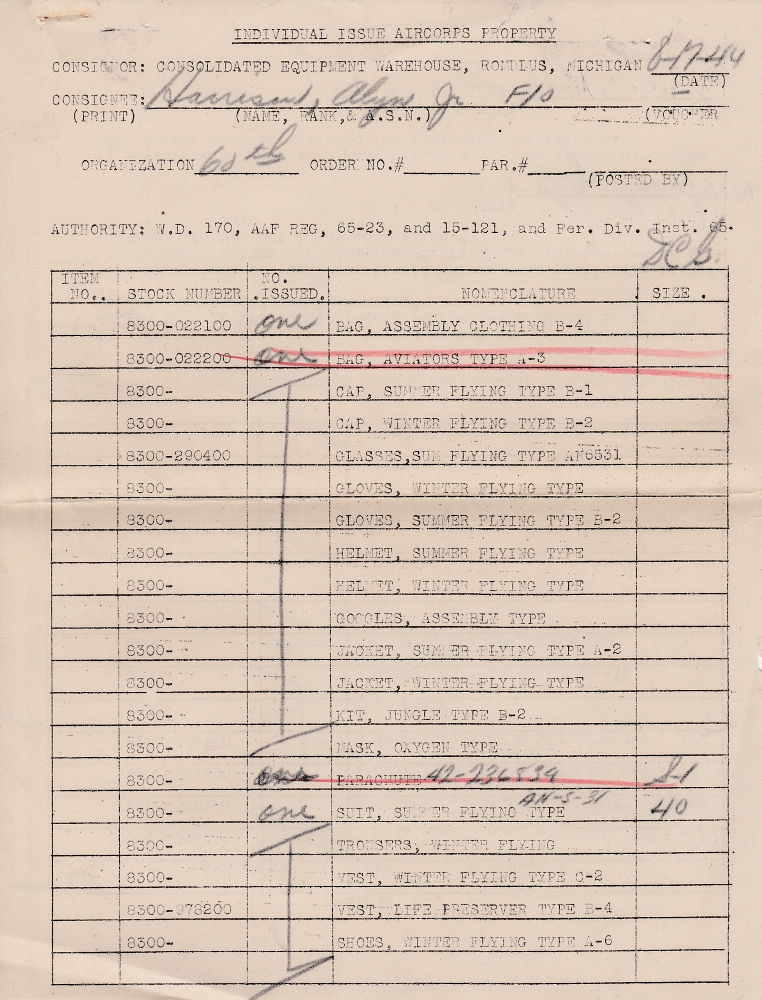 INDIVIDUAL ISSUE AIRCORPS PROPERTY
CONSIGNOR: CONSOLIDATED EQUIPMENT WAREHOUSE, ROMULUS, MICHIGAN 8-17-44
(DATE)
CONSIGNEE: Harrison, Alyn Jr F/O
(PRINT) (NAME, RANK,& A.S.N.) (VOUCHER
ORGANIZATION 60th ORDER NO.# PAR.#
(POSTED BY)
AUTHORITY: W.D. 170, AAF REG, 65-23, and 15-121, and Fer. Div. Inst. 65-
ITEM NO.. STOCK NUMBER NO. .ISSUED. NOMENCLATURE SIZE .
8300-022100 one BAG, ASSEMBLY CLOTHING B-4
8300-022200 one BAG, AVIATORS TYPE A-3
8300- CAP, SUMMER FLYING TYPE B-1
8300- CAP, WINTER FLYING TYPE B-2
8300-290400 GLASSES,SUM FLYING TYPE AN6531
8300- GLOVES, WINTER FLYING TYPE
8300- GLOVES, SUMMER FLYING TYPE B-2
8300- HELMET, SUMMER FLYING TYPE
8300- HELMET, WINTER FLYING TYPE
8300- GOGGLES, ASSEMBLY TYPE
8300- JACKET, SUMMER FLYING TYPE A-2
8300- JACKET, WINTER FLYING TYPE
8300- KIT, JUNGLE TYPE B-2
8300- MASK, OXYGEN TYPE
8300- one PARACHUTE 42-236534 S-1
8300- one SUIT, SUMMER FLYING TYPE AN-S-31 40
8300- TROUSERS, WINTER FLYING
8300- VEST, WINTER FLYING TYPE C-2
8300-978200 VEST, LIFE PRESERVER TYPE B-4
8300- SHOES, WINTER FLYING TYPE A-6